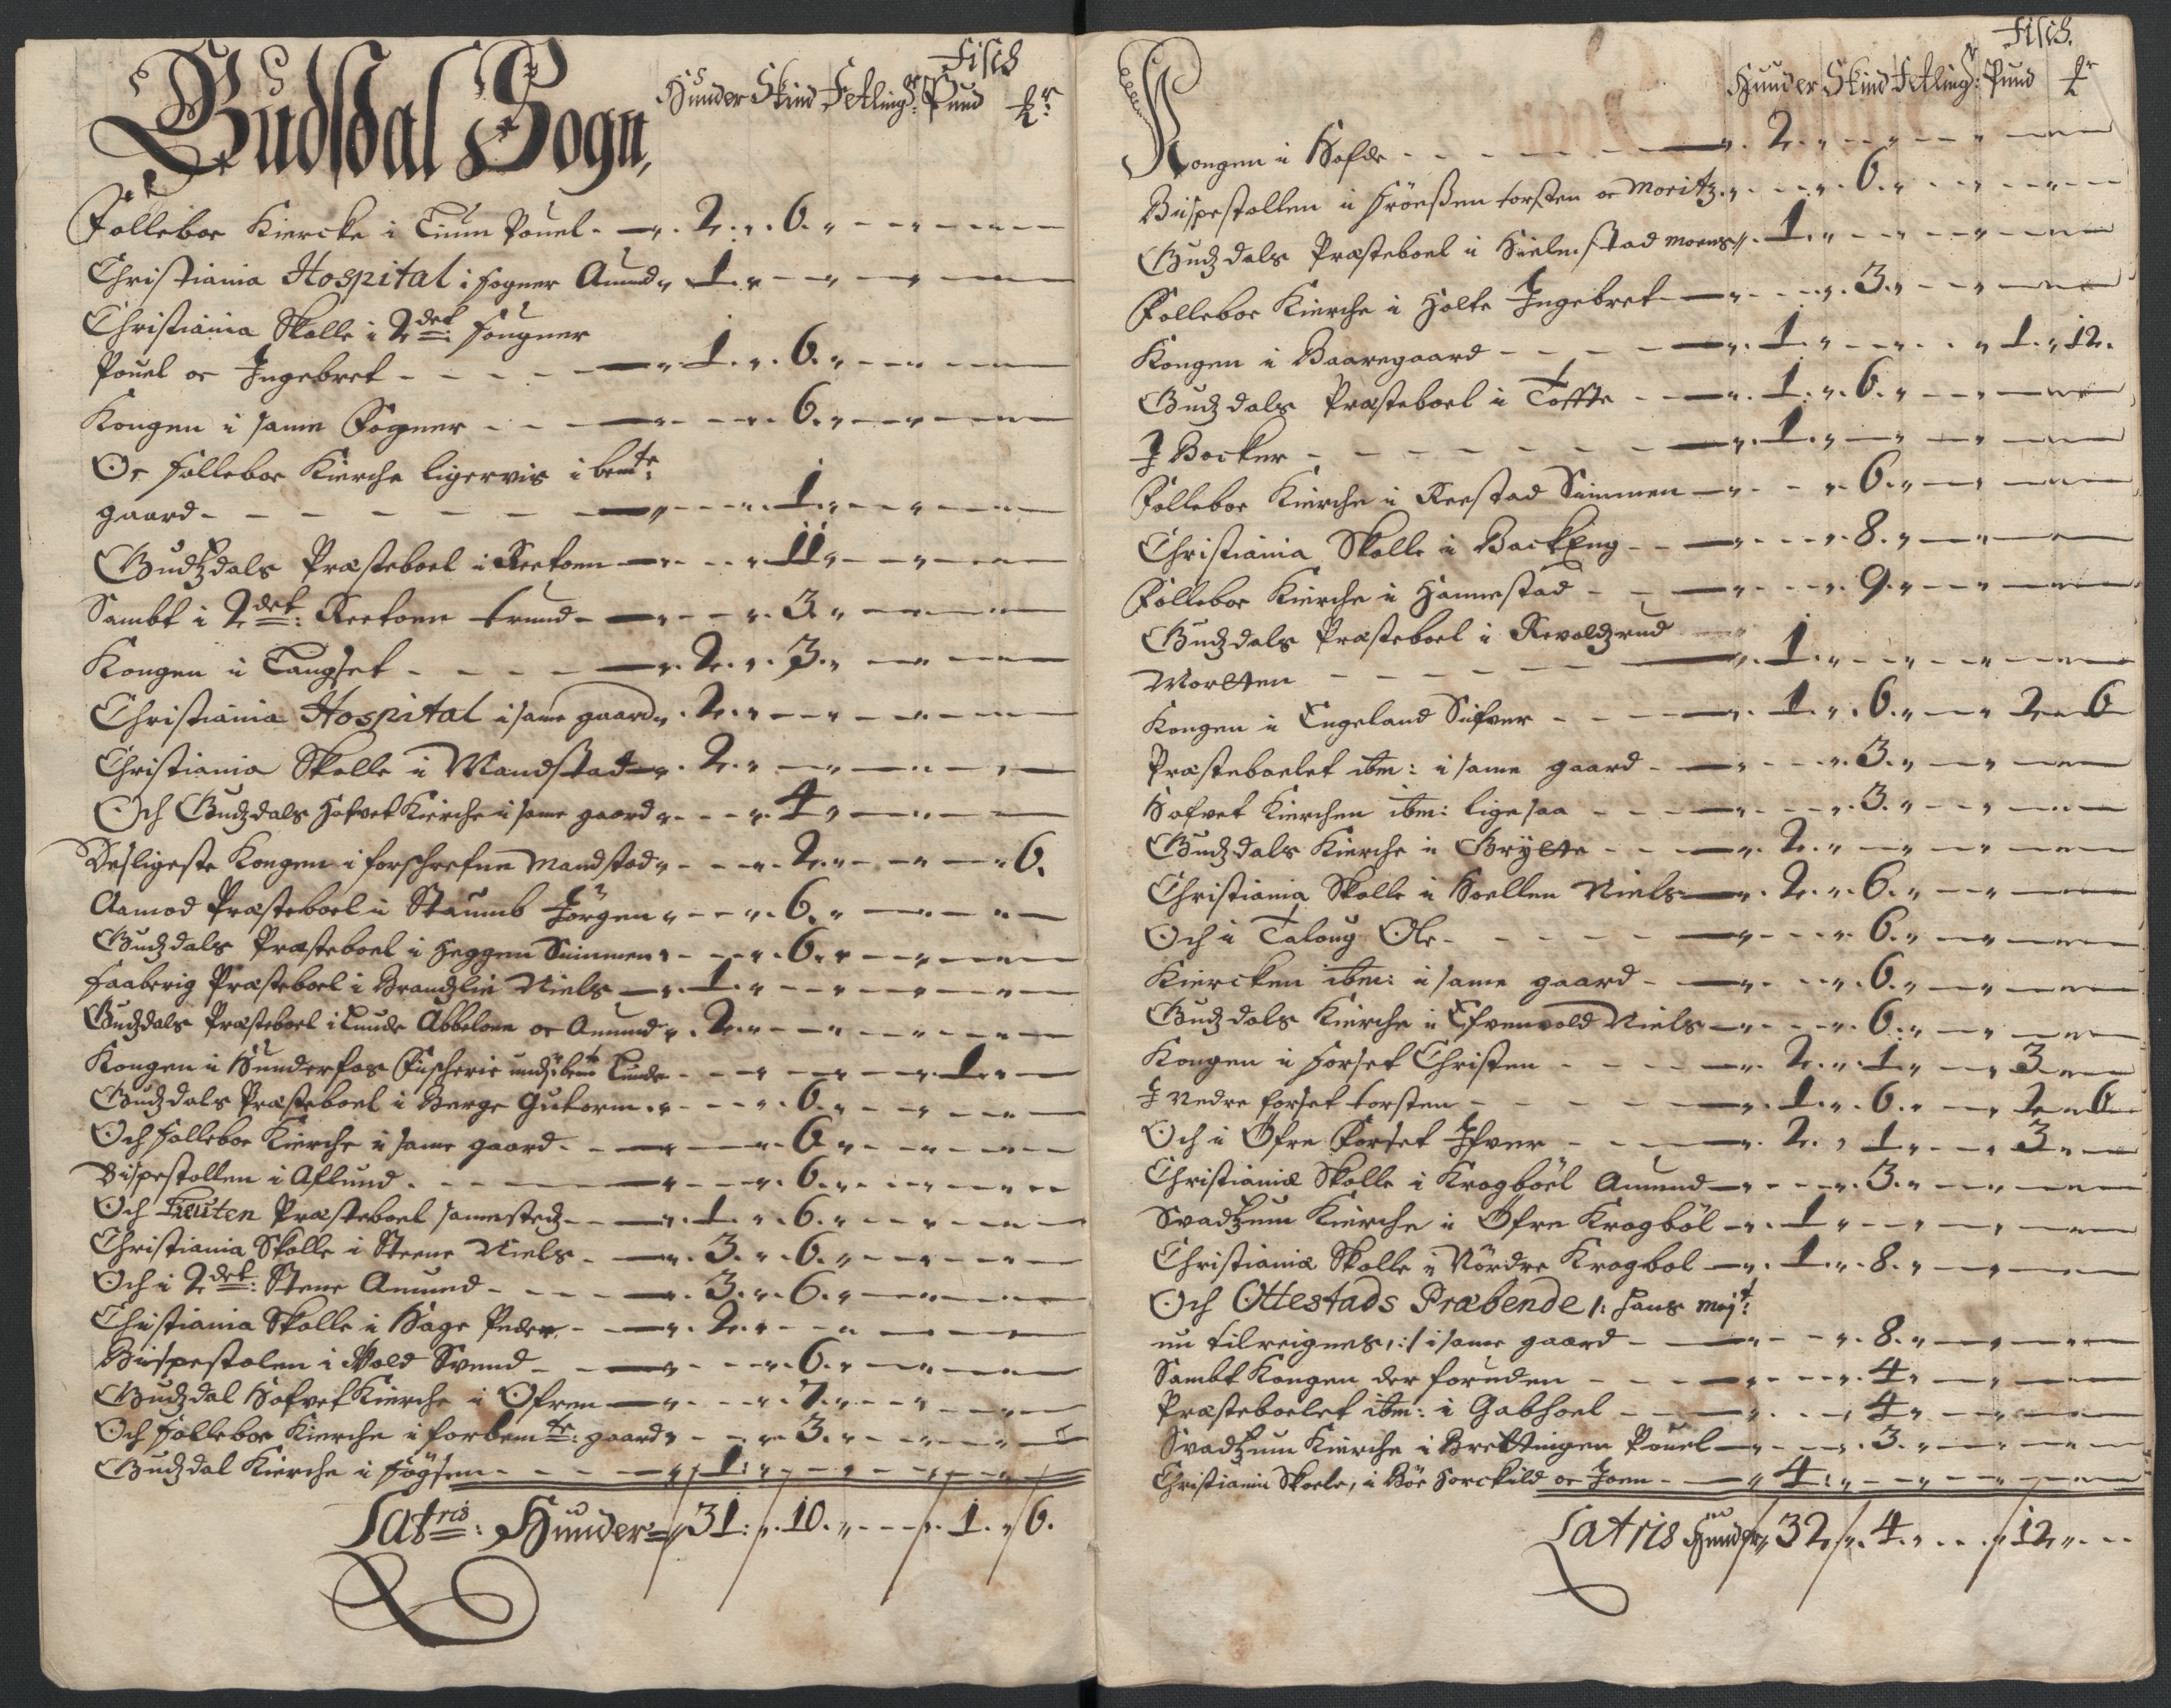 Fisch
Gudsdal Sogn, Hunder Skind Fetling: Pund
Folleboe Kiercke i Tium Pouel - 2. 6.
Christiania Hospital i fogner Amund 1.
Christiania Skolle i 2det: fougner
Pouel oc Ingebret - - - 1. 6.
Kongen i same Fogner - - 6.
Oc Folleboe Kierche ligervis i bemte:
gaard - - - 1.
Gudzdals Præsteboel i - 11.
Sambt i 2det: trund - 3.
Kongen i Tangset - - - 2. 3.
Christiania Hospital i same gaard 2.
Christiania Skolle i Mandstad 2.
Och Gudzdals Hofvet Kierche i same gaard 4
Desligeste Kongen i forschrefne Mandstad 2. 6.
Aamod Præsteboel i Staumb Jörgen 6.
Gudzdals Præsteboel i Heggen Simmen 6.
Faaberig Præsteboel i Brandzlie Niels 1.
Gudzdals Præsteboel i Lunde Abbelone oc Amund 2.
Kongen i Hunderfos Fischerie Lunde 1.
Gudzdals Præsteboel i Berge Gutorm 6.
Och Folleboe Kierche i same gaard - 6
Bispestollen i Aflund - - 6.
Och Præsteboel samestedz - 1. 6.
Christiania Skolle i Steene Niels - 3. 6.
Och i 2det: Stene Amund - - 3. 6.
Christiania Skolle i Hage Peder - 2.
Bispestolen i Vold Svend - 6.
Gudzdal Hofvet Kierche i Ofren 7.
Och Folleboe Kierche i forbemte: gaard 3.
Gudzdal Kierche i - - 1.
Latris: Hunder 31. 10. 1. 6.
Fisch.
Hunder Skind Fetling: Pund
Kongen i Hofde - - - 2.
Bispestollen i torsten oc Moritz 6.
Gudzdals Præsteboel i Hielmstad moens 1.
Folleboe Kierche i Holte Ingebret 3.
Kongen i Baaregaard - - - 1. 1. 12.
Gudzdals Præsteboel i Toffte - 1. 6.
I Backer - - - 1.
Folleboe Kierche i Simmen 6.
Christiania Skolle i BackEng - 8.
Folleboe Kierche i Hannestad - 9.
Gudzdals Præsteboel i Revoldzrud
Mortten - - - 1.
Kongen i Engeland Sifver - 1. 6. 2 6
Præsteboelet ibm: i same gaard - 3.
Hofvet Kierchen ibm: ligesaa - 3.
Gudzdals Kierche i Brÿtte - 2.
Christiania Skolle i Hoellen Niels 2. 6.
Och i Taloug Ole - - - 6.
Kiercken ibm: i same gaard - 6.
Gudzdals Kierche i Efvenvold Niels 6.
Kongen i Forset Christen - - 2. 1. 3
I Nedre forset torsten - - 1. 6. 2 6
Och i Öfre Forset Ifver - 2. 1. 3
Christianiæ Skolle i Krogböel Amund 3.
Svadzum Kierche i Öfre Krogböl 1
Christianiæ Skolle i Nördre Krogbol 1. 8.
Och Ottestads Præbende /: Hans Majt:
nu tilreignes, :/ i same gaard - 8.
Sambt Kongen der foruden - - 4.
Præsteboelet ibm: i Gabhoel - 4
Svadzum Kierche i Brettingen Pouel 3.
Christianiæ Skoele, i Böe Torckild oc Joen - 4.
Latris Hunder 32. 4. 12.